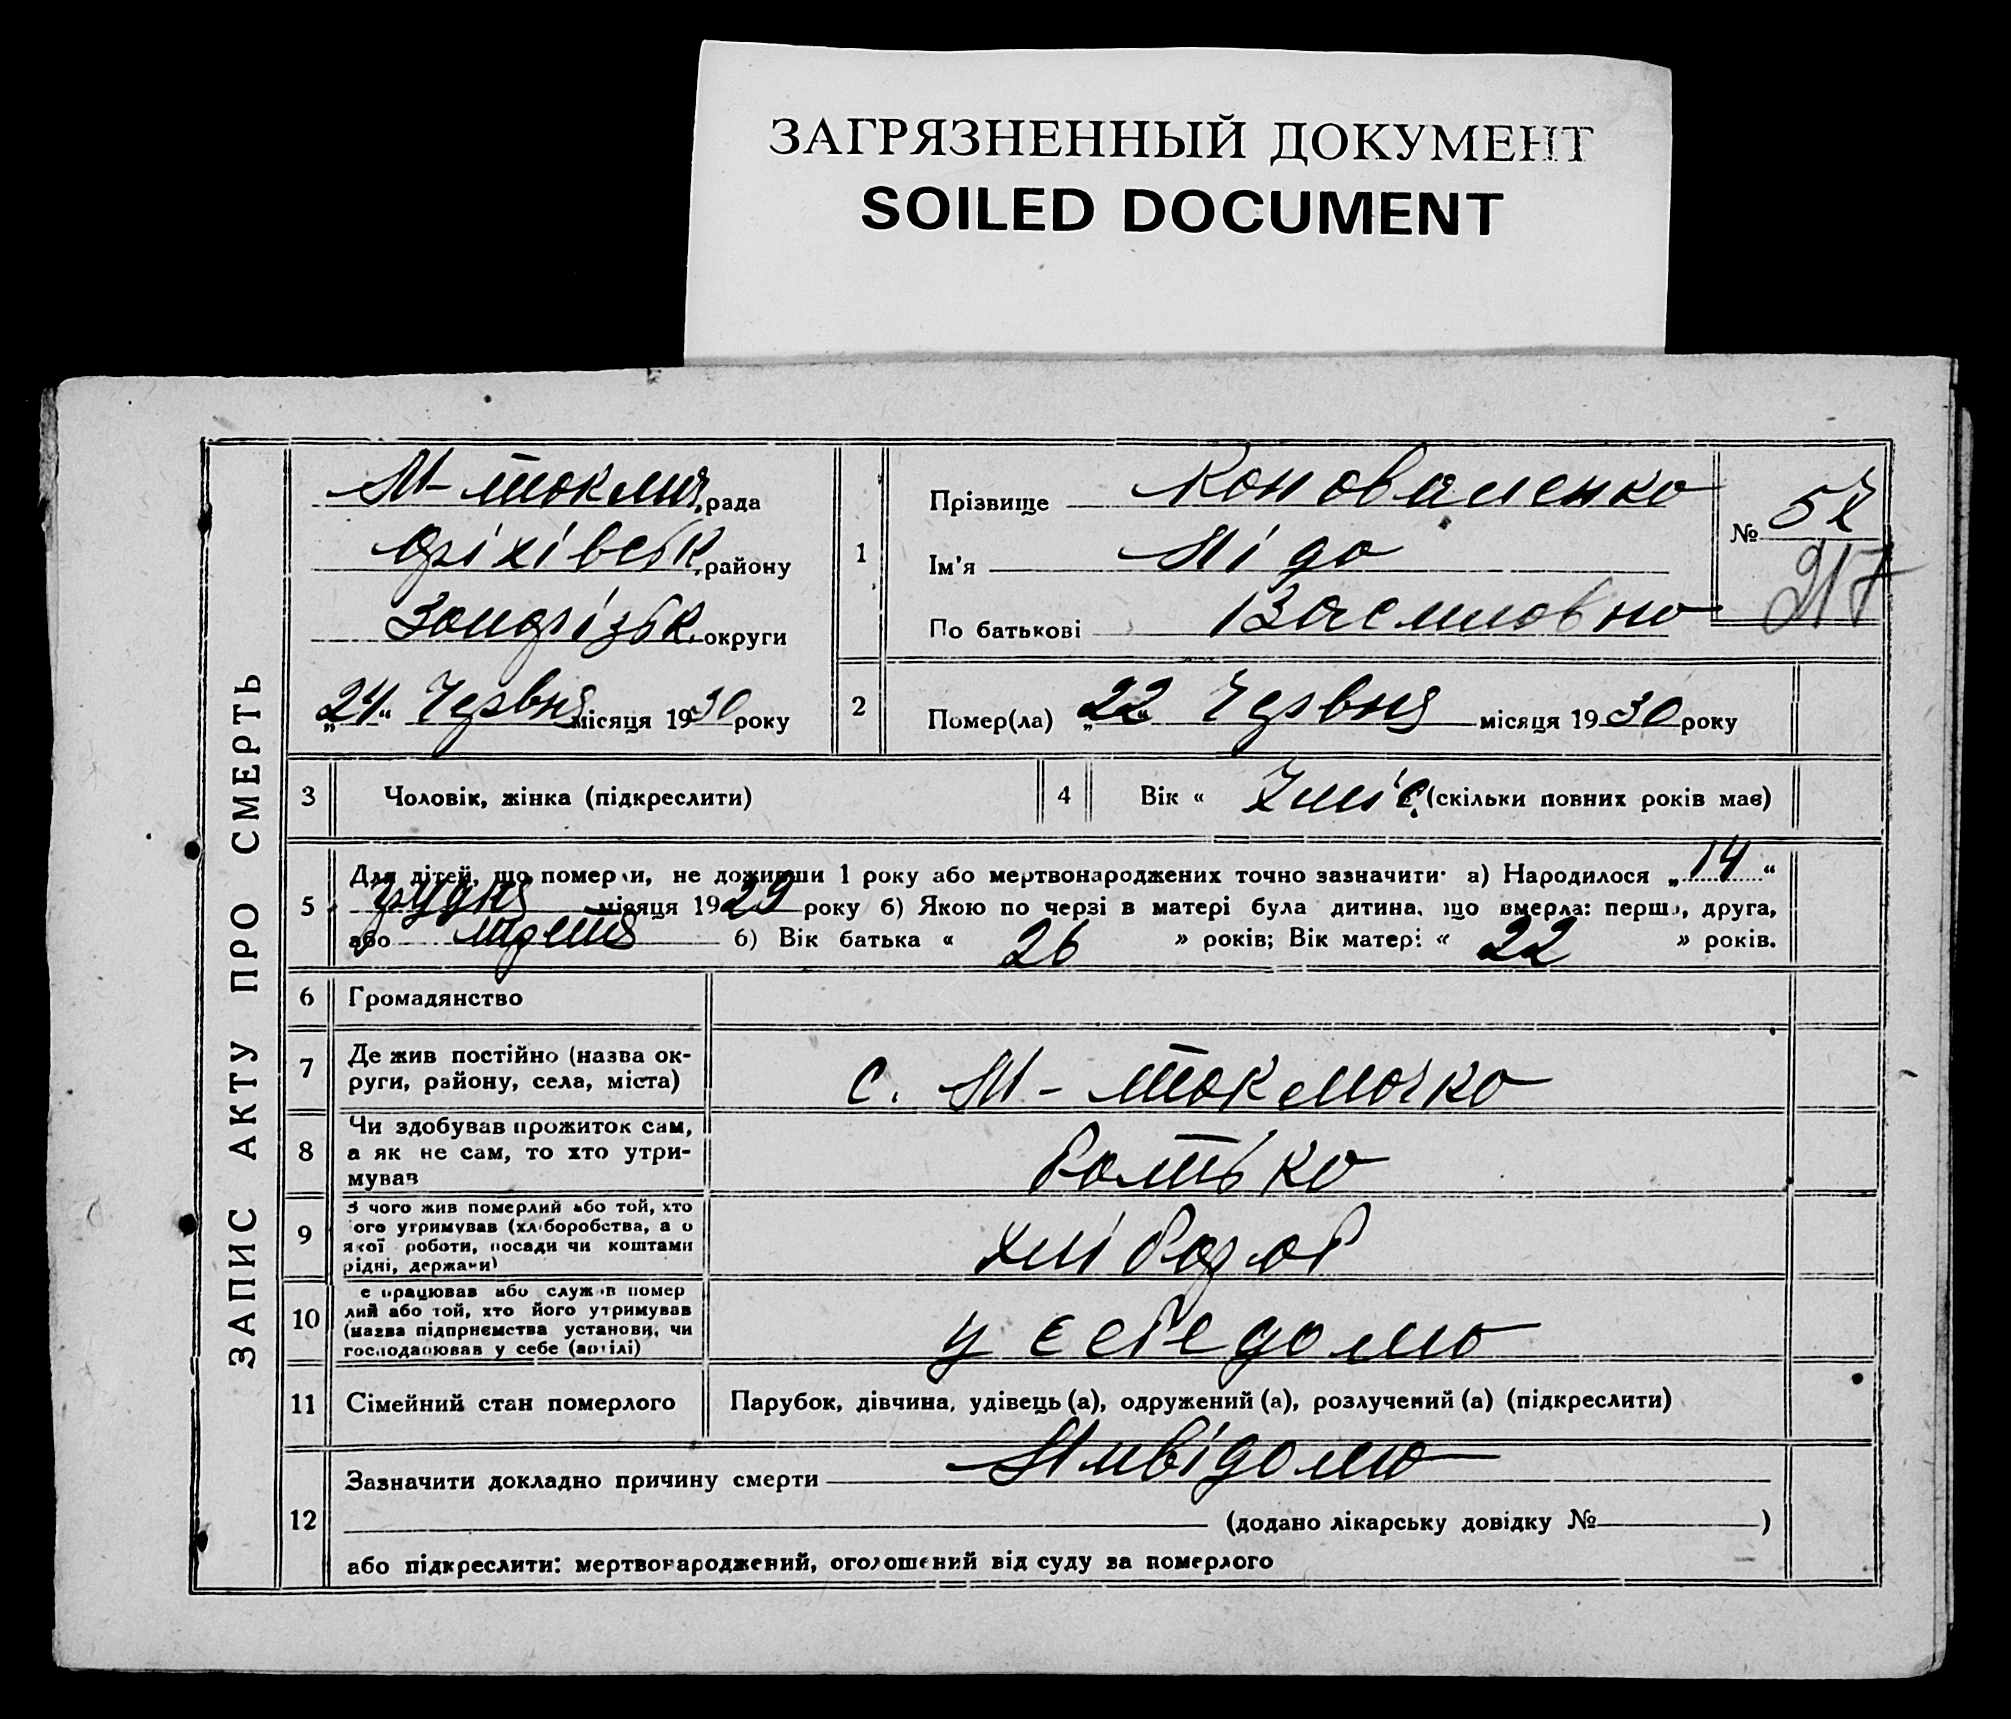 ЗАГРЯЗНЕННЫЙ ДОКУМЕНТ
SOILED DOCUMENT
ЗАПИС АКТУ ПРО СМЕРТЬ
М-токмач. рада
Оріхівськ. району
Запорізьк. округи
„24“ Червня місяця 1930 року
1
Прізвище Коноваленко
Ім'я Ліда
По батькові Василовна
№ 57
217
2
Помер(ла) „22“ Червня місяця 1930 року
3 Чоловік, жінка (підкреслити)
4 Вік « 7 міс. (скільки повних років має)
5
Для дітей, що померли, не доживши 1 року або мертвонароджених точно зазначити: а) Народилося „14“
грудня місяця 1929 року б) Якою по черзі в матері була дитина, що вмерла: перша, друга,
або третя б) Вік батька « 26 » років; Вік матері « 22 » років.
6 Громадянство
7
Де жив постійно (назва ок-
руги, району, села, міста)
с. М-токмачка
8
Чи здобував прожиток сам,
а як не сам, то хто утри-
мував
батько
9
З чого жив померлий або той, хто
ого утримував (хліборобства, а о
якої роботи, посади чи коштами
рідні, держави)
хлібороб
10
е працював або служив помер
лий або той, хто його утримував
(назва підприємства установи, чи
господарював у себе (артілі)
у себе дома
11 Сімейний стан померлого
Парубок, дівчина, удівець (а), одружений (а), розлучений (а) (підкреслити)
12
Зазначити докладно причину смерти Нивідомо
(додано лікарську довідку № )
або підкреслити: мертвонароджений, оголошений від суду за померлого